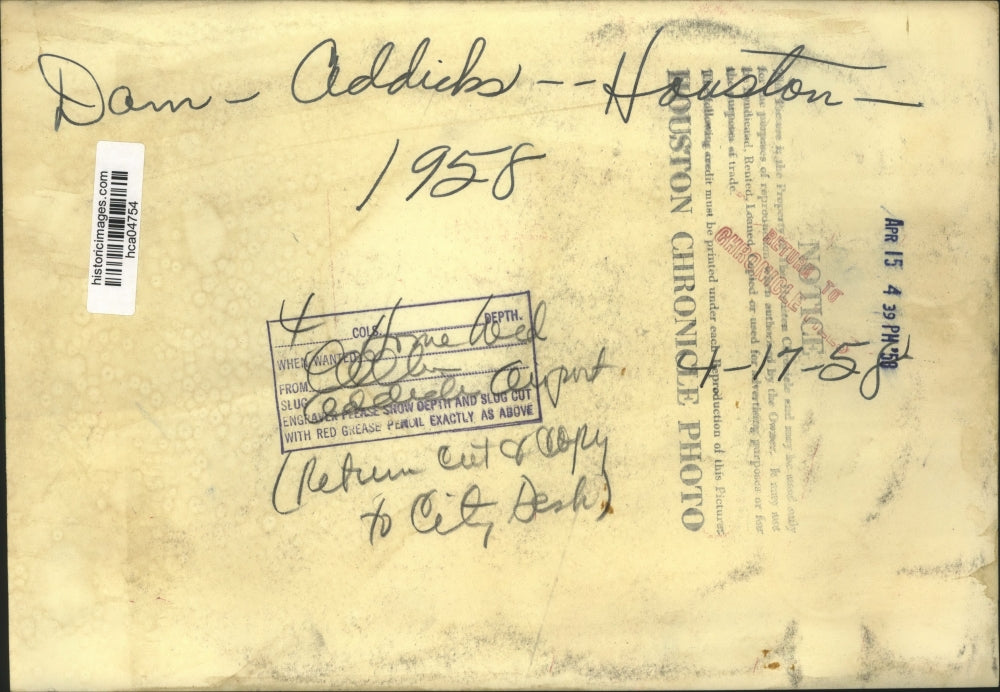 Dam - Addicks -- Houston -
1958
historicimages.com
hca04754
4 COLS. DEPTH.
WHEN WANTED Home Wed
FROM
SLUG Addicks Airport
ENGRAVER PLEASE SHOW DEPTH AND SLUG CUT
WITH RED GREASE PENCIL EXACTLY AS ABOVE
(Return cut & copy
to City Desk)
4-17-58
APR 15 4 39 PM '58
RETURN TO
CHRONICLE
NOTICE
Picture is the Property and may be used only
for the purposes of reproduction by the Owner. It may not
Syndicated, Rented, Loaned, Copied or used for advertising purposes or for
the purposes of trade.
The following credit must be printed under each Reproduction of this Picture:
HOUSTON CHRONICLE PHOTO